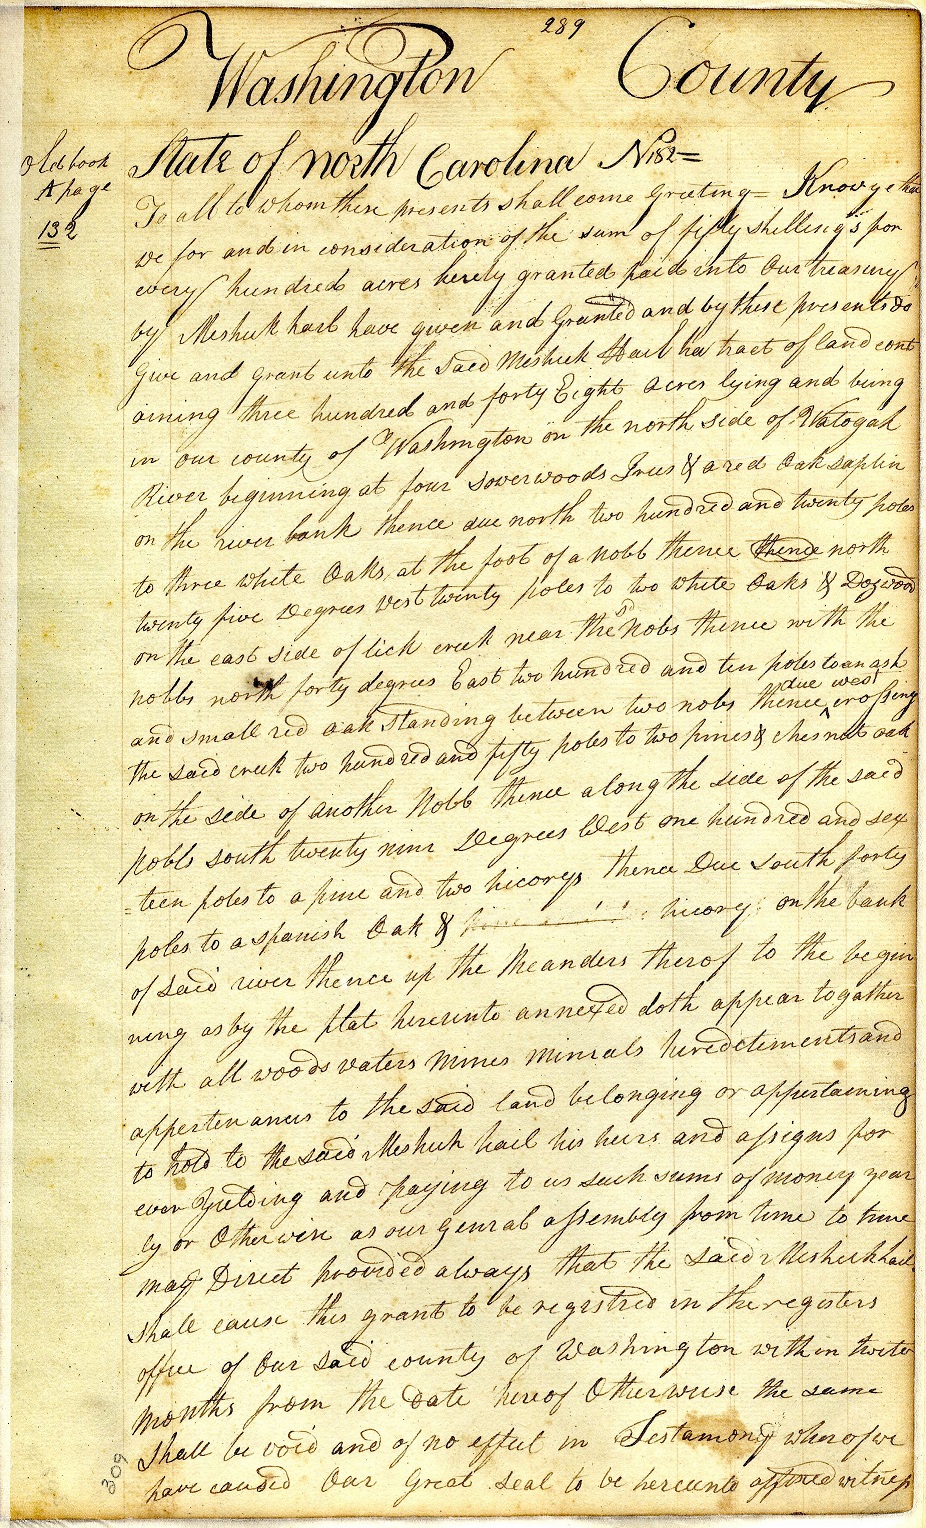 289
Washington County
Old book
A page
132
State of north Carolina No 182=
To all to whom these presents shall come Greeting= Know ye that
we for and in consideration of the sum of fifty shillings for
every hundred acres hereby granted paid into our treasury
by Meshuk hail have given and Granted and by these presents do
Give and grant unto the said Meshuk Hail a tract of land cont
aining three hundred and forty Eight acres lying and being
in our county of Washington on the north side of Watogah
River beginning at four sowerwoods Trees & a red Oak saplin
on the river bank thence due north two hundred and twenty poles
to three white Oaks, at the foot of a nobb thence thence north
twenty five Degrees West twenty poles to two white Oaks & Dogwood
on the east side of lick creek near the sd Nobs thence with the
nobbs north forty degrees East two hundred and ten poles to an ash
and small red oak standing between two nobs thence due west crossing
the said creek two hundred and fifty poles to two pines & chesnut oak
on the side of another Nobb thence along the side of the said
nobb south twenty nine Degrees West one hundred and sex
=teen poles to a pine and two hicorys thence Due South forty
poles to a spanish Oak & hicory on the bank
of said river thence up the Meanders therof to the begin
ning as by the plat hereunto annexed doth appear togather
with all woods waters Mines minrals heredetements and
appertenances to the said land belonging or appertaining
to hold to the said Meshuk hail his heirs and assigns for
ever Yielding and paying to us such sums of money year
ly or Otherwise as our Genral assembly from time to time
may Direct provided always that the said Meshuck hail
shall cause this grant to be registred in the registers
office of Our said county of Washington with in twelve
months from the date hereof Otherwise the same
Shall be void and of no effect in Testamony wherof we
have caused Our Great seal to be hereunto affixed witness
309